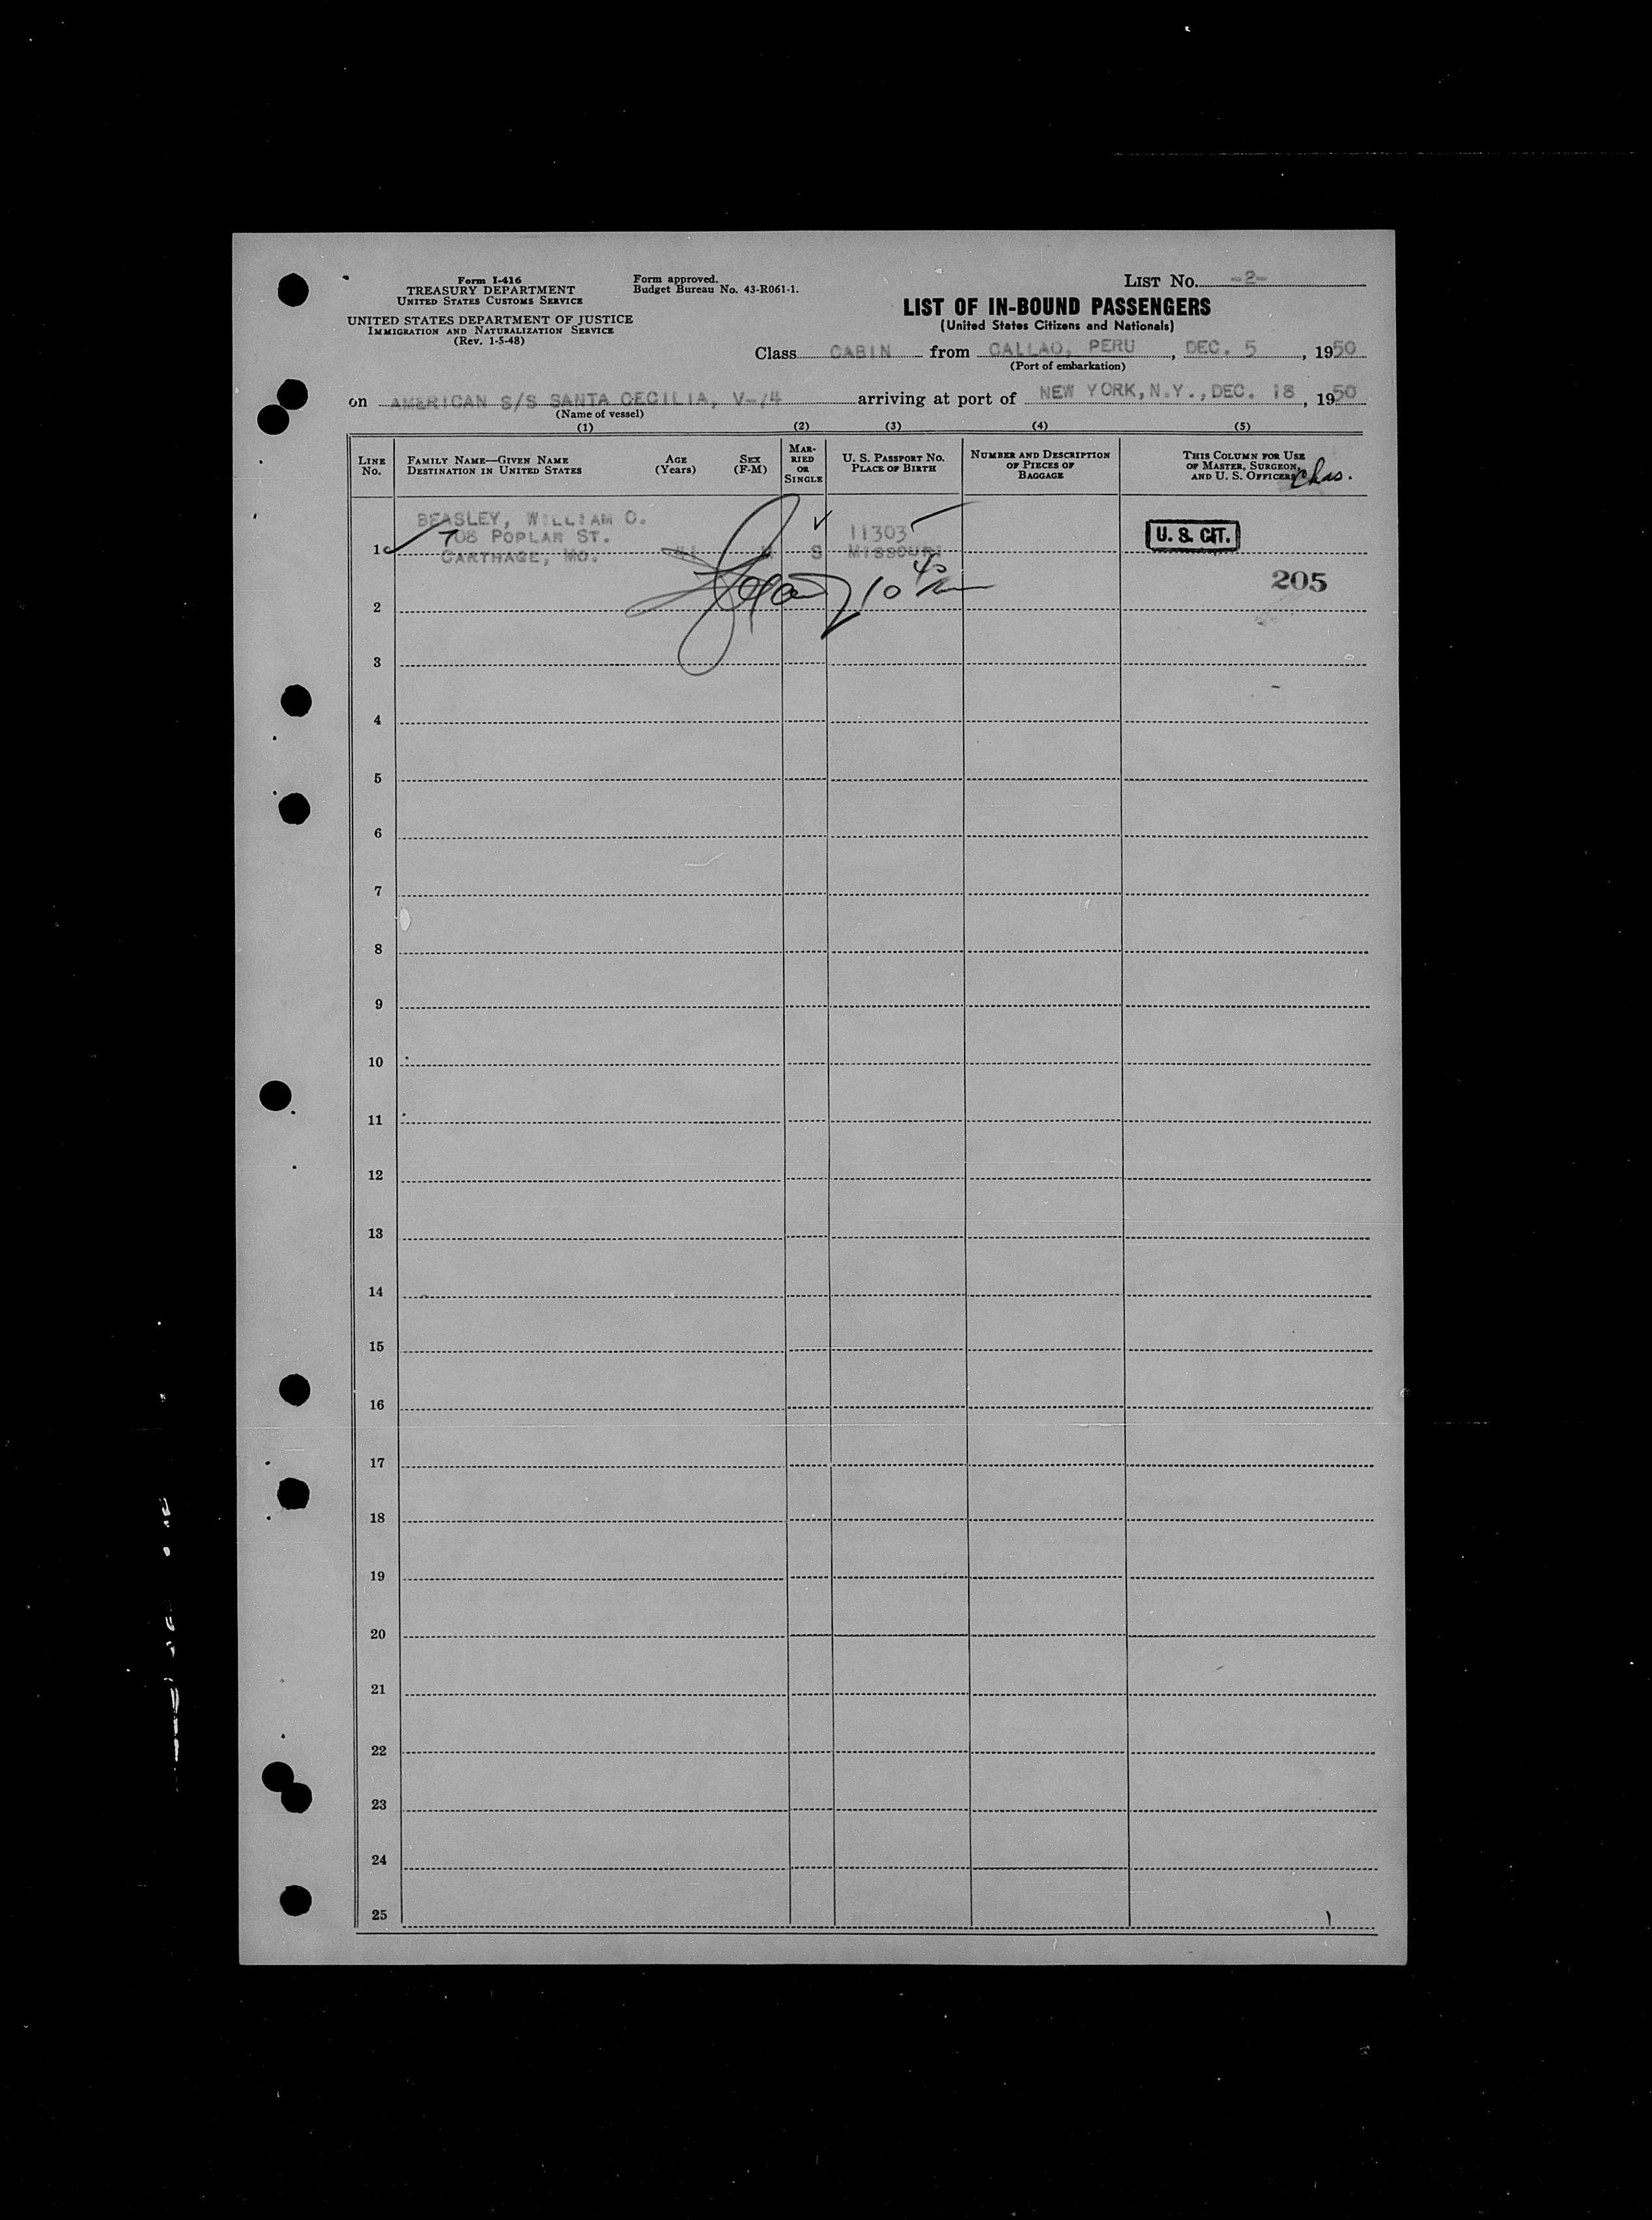 Form I-416
TREASURY DEPARTMENT
UNITED STATES CUSTOMS SERVICE
UNITED STATES DEPARTMENT OF JUSTICE
IMMIGRATION AND NATURALIZATION SERVICE
(Rev. 1-5-48)
Form approved.
Budget Bureau No. 43-R061-1.
LIST No. -2-
LIST OF IN-BOUND PASSENGERS
(United States Citizens and Nationals)
Class CABIN from CALLAO, PERU, DEC. 5, 1950
(Port of embarkation)
on AMERICAN S/S SANTA CECILIA, V-74 arriving at port of NEW YORK, N.Y., DEC. 18, 1950
(Name of vessel)
(1) (2) (3) (4) (5)
LINE NO.
FAMILY NAME—GIVEN NAME
DESTINATION IN UNITED STATES
AGE (YEARS)
SEX (F-M)
MAR-
RIED
OR
SINGLE
U. S. PASSPORT NO.
PLACE OF BIRTH
NUMBER AND DESCRIPTION
OF PIECES OF
BAGGAGE
THIS COLUMN FOR USE
OF MASTER, SURGEON,
AND U. S. OFFICERS
Chas.
BEASLEY, WILLIAM C.
708 POPLAR ST.
11303
U. S. CIT.
1 CARTHAGE, MO. M S MISSOURI
10 40
205
2
3
4
5
6
7
8
9
10
11
12
13
14
15
16
17
18
19
20
21
22
23
24
25